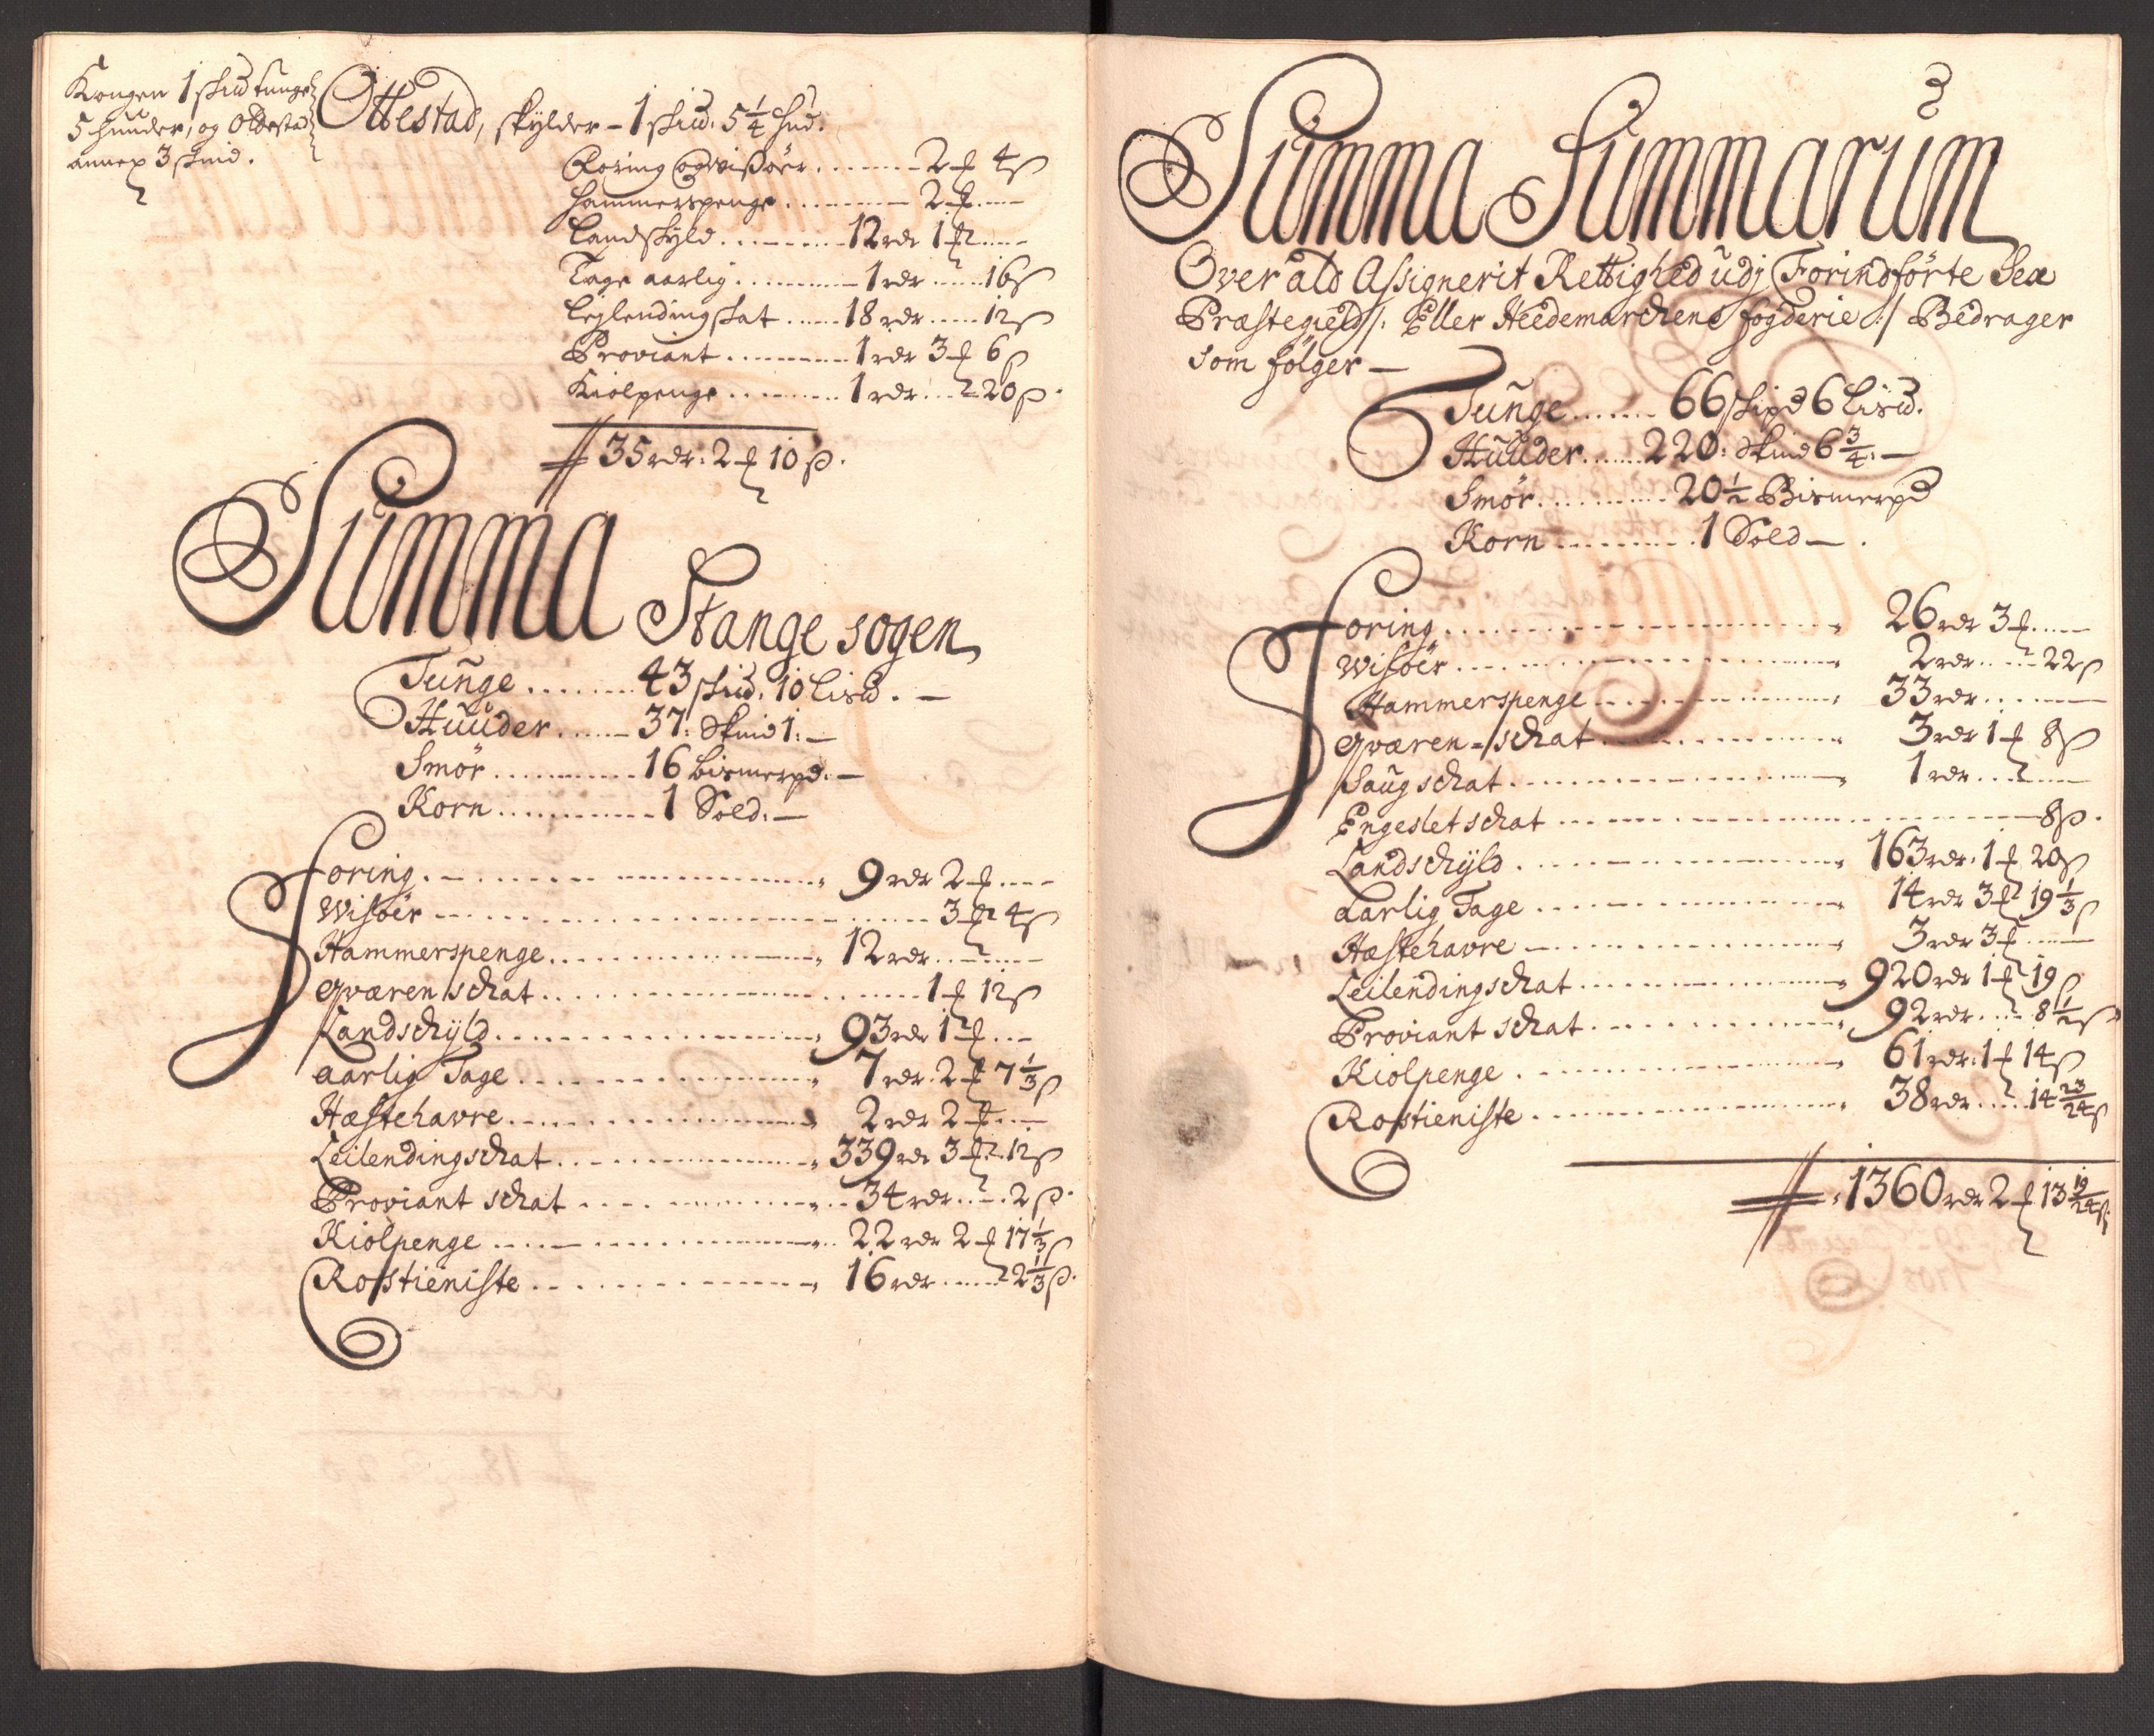 Kongen 1 skud tunge
5 huuder, og Oldestad
annex 3 skind.
Ottestad, skylder – 1 skud: 5 1/4 hud.
Foring og Wißöer ....... 2 ƒ 4 ß
Hammerspenge ....... 2 ƒ ....
Landskyld ....... 12 rdr 1 ƒ ....
Tage aarlig ....... 1 rdr .... 16 ß
Lejlendingskat ..... 18 rdr ..... 12 ß
Proviant ....... 1 rdr 3 ƒ 6 ß
Kiolpenge ....... 1 rdr .... 20 ß.
35 rdr: 2 ƒ 10 ß.
Summa Stange sogen
Tunge ....... 43 skud. 10 Lisud. –
Huuder ...... 37: Skind 1: –
Smör ....... 16 bismerpd. –
Korn ....... 1 Sold. –
Foring ....... 9 rdr 2 ƒ ....
Wisöer ....... 3 ƒ 4 ß
Hammerspenge ....... 12 rdr .......
Qværen schat ....... 1 ƒ 12 ß
Landschyld ....... 93 rdr 1 ƒ ....
Aarlig Tage ....... 7 rdr. 2 ƒ 7 1/3 ß
Hæstehavre ....... 2 rdr 2 ƒ ....
Leilendingschat ....... 339 rdr 3 ƒ 12 ß
Proviant schat ....... 34 rdr .... 2 ß.
Kiolpenge ....... 22 rdr 2 ƒ 17 1/3 ß
Rosstieniste ....... 16 rdr ..... 2 1/3 ß.
3
Summa Summarum
Over ald Assignerit Rettighed udj Forindförte Sex
Præstegield /: Eller Heedemarchens fogderie :/ Bedrager
som fölger –
Tunge ....... 66 skipd 6 Lisud.
Huuder ....... 220: Skind 6 3/4: –
Smör ....... 20 1/2 Bismerpd
Korn ....... 1 Sold – .
Foring ....... 26 rdr 3 ƒ ....
Wisöer ....... 2 rdr .... 22 ß
Hammerspenge ....... 33 rdr .......
Qværen-schat ....... 3 rdr 1 ƒ 8 ß
Saugschat ....... 1 rdr .......
Engesletschat ....... 8 ß.
Landschyld ....... 163 rdr. 1 ƒ 20 ß
Aarlig Tage ....... 14 rdr 3 ƒ 19 1/3 ß
Hæstehavre – ....... 3 rdr 3 ƒ ....
Leilendingschat ....... 920 rdr 1 ƒ 19 ß
Proviant schat ....... 92 rdr .... 8 1/2 ß
Kiolpenge ....... 61 rdr: 1 ƒ 14 ß
Rosstieniste ....... 38 rdr ..... 14 23/24 ß
1360 rdr 2 ƒ 13 19/24 ß.